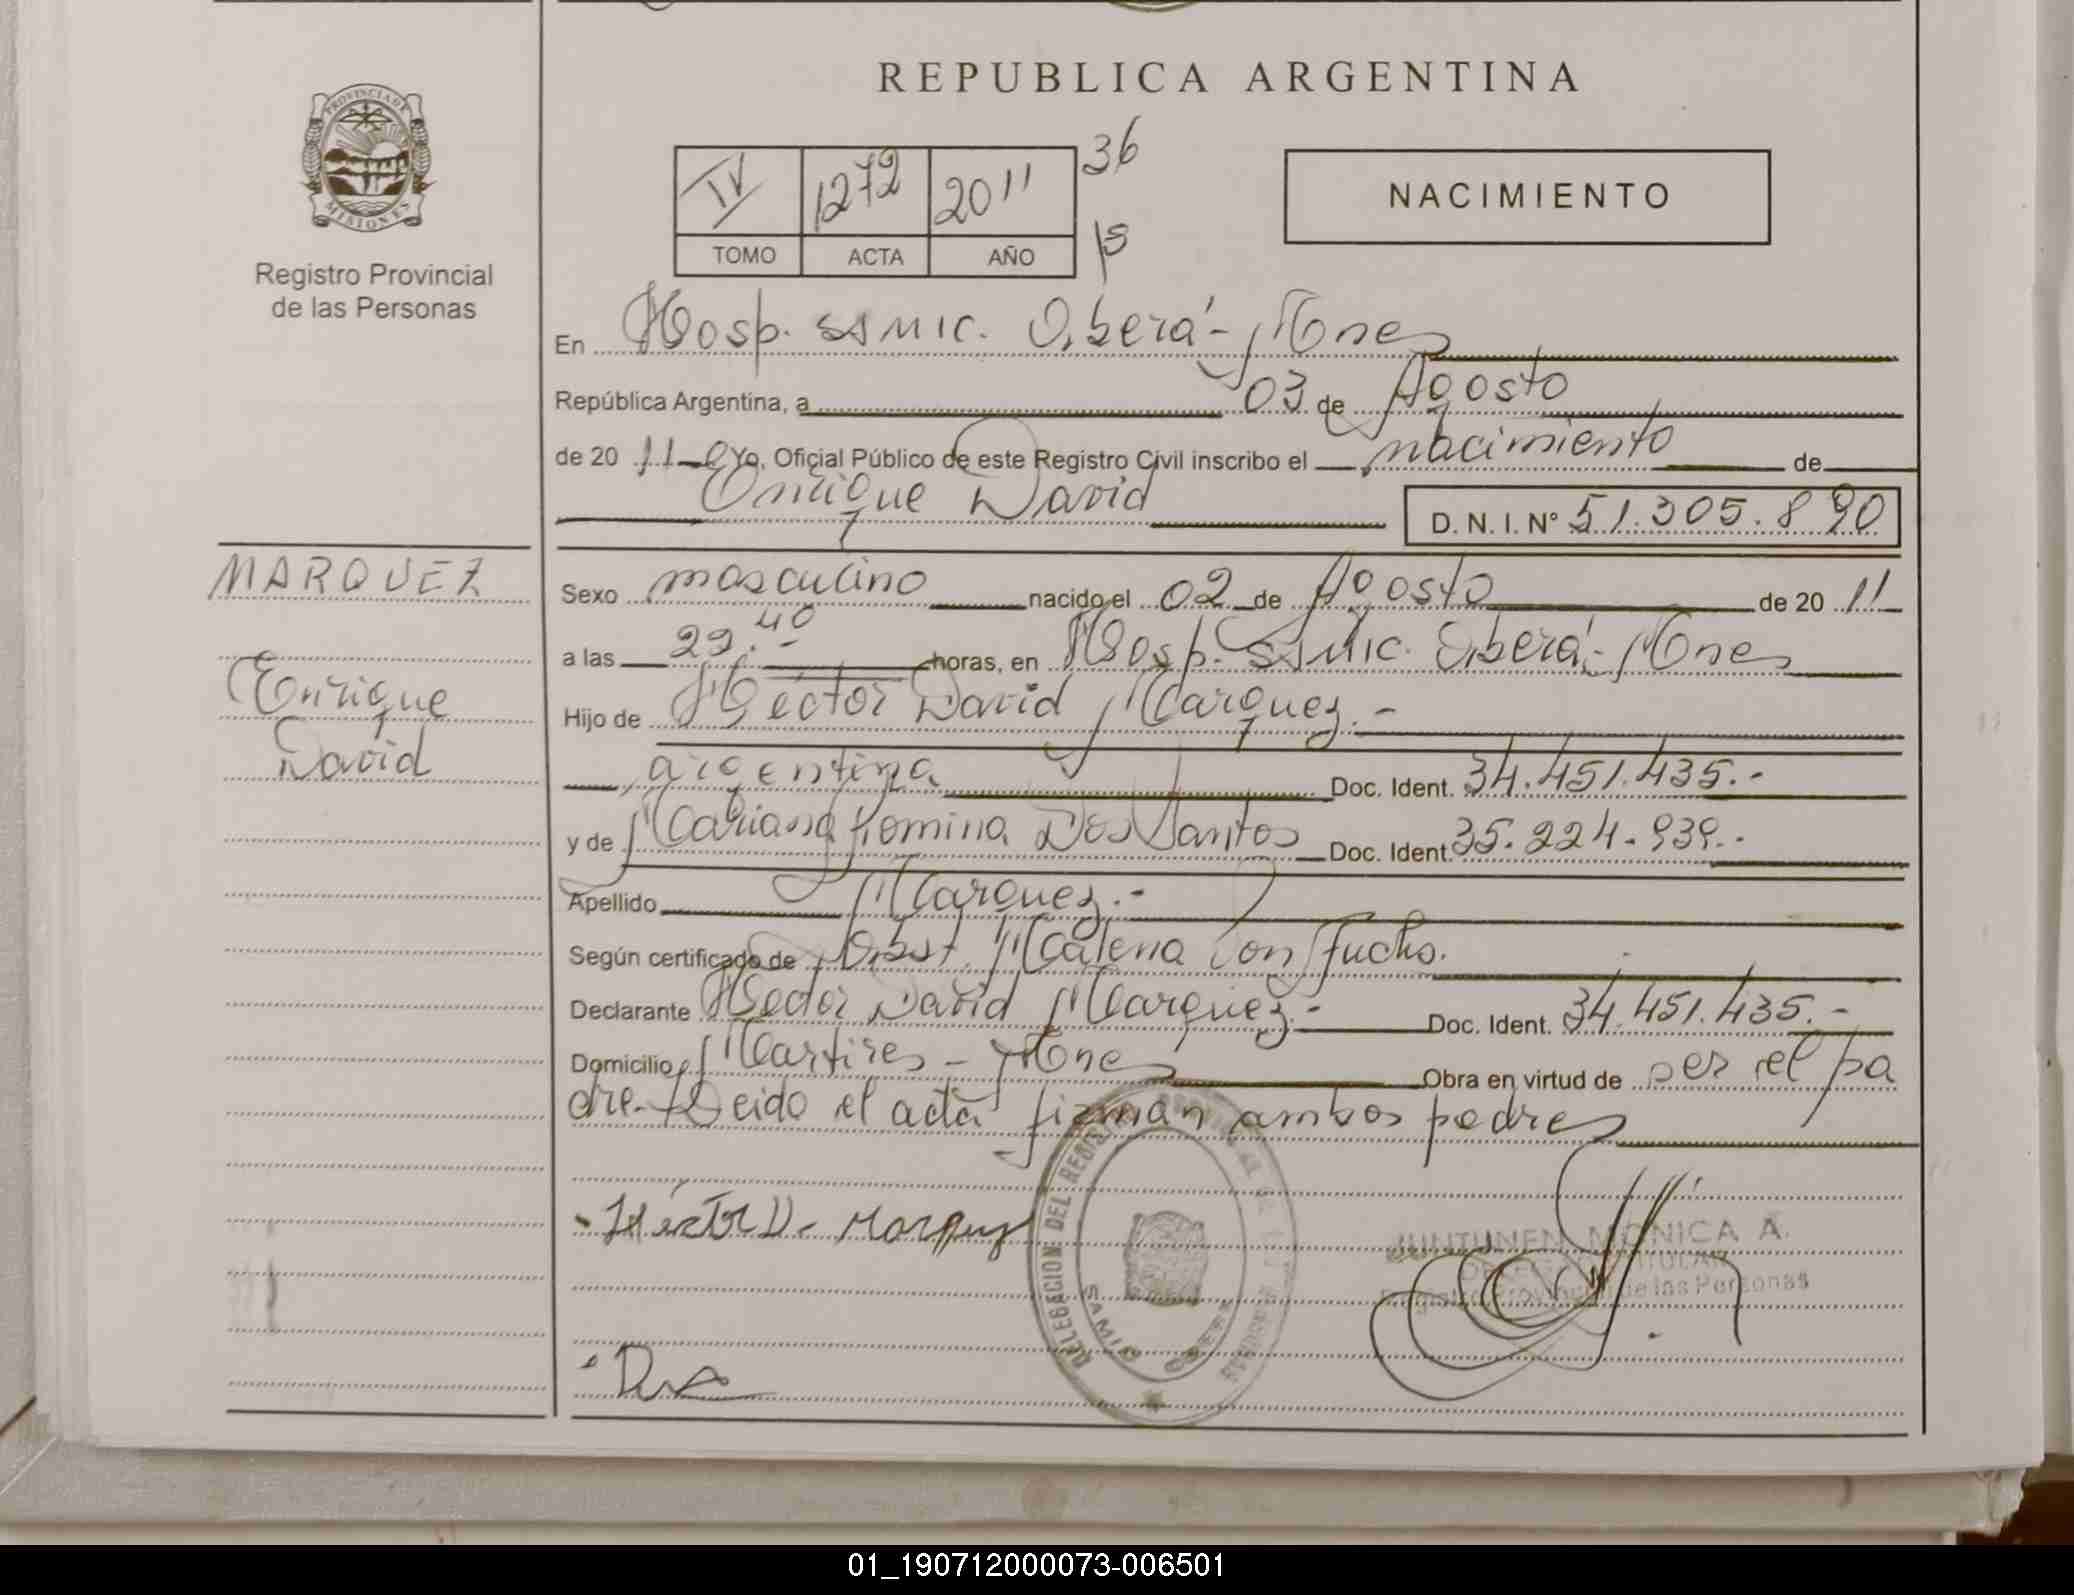 REPUBLICA ARGENTINA
PROVINCIA DE
MISIONES
Registro Provincial
de las Personas
IV 1272 2011 36
TOMO ACTA AÑO 15
NACIMIENTO
En Hosp. SAMIC. Oberá - Mnes
República Argentina, a 03 de Agosto
de 20 11 Yo, Oficial Público de este Registro Civil inscribo el nacimiento de
Enrique David D. N. I. Nº 51.305.890
MARQUEZ
Enrique
David
Sexo masculino nacido el 02 de Agosto de 20 11
a las 22.40 horas, en Hosp. SAMIC. Oberá - Mnes
Hijo de Héctor David Marquez.-
argentina Doc. Ident. 34.451.435.-
y de Mariana Romina Dos Santos Doc. Ident. 35.224.939.-
Apellido Marquez.-
Según certificado de Obst. Malena Von
Declarante Hector David Marquez.- Doc. Ident. 34.451.435.-
Domicilio Martires - Mnes Obra en virtud de ser el pa
dre.- Leido el acta firman ambos padres
Héctor D. Marquez
DELEGACION DEL REGISTRO PROVINCIAL DE LAS PERSONAS
SAMIC OBERA
JUNTUNEN MONICA A.
TITULAR
Registro Provincial de las Personas
01_190712000073-006501